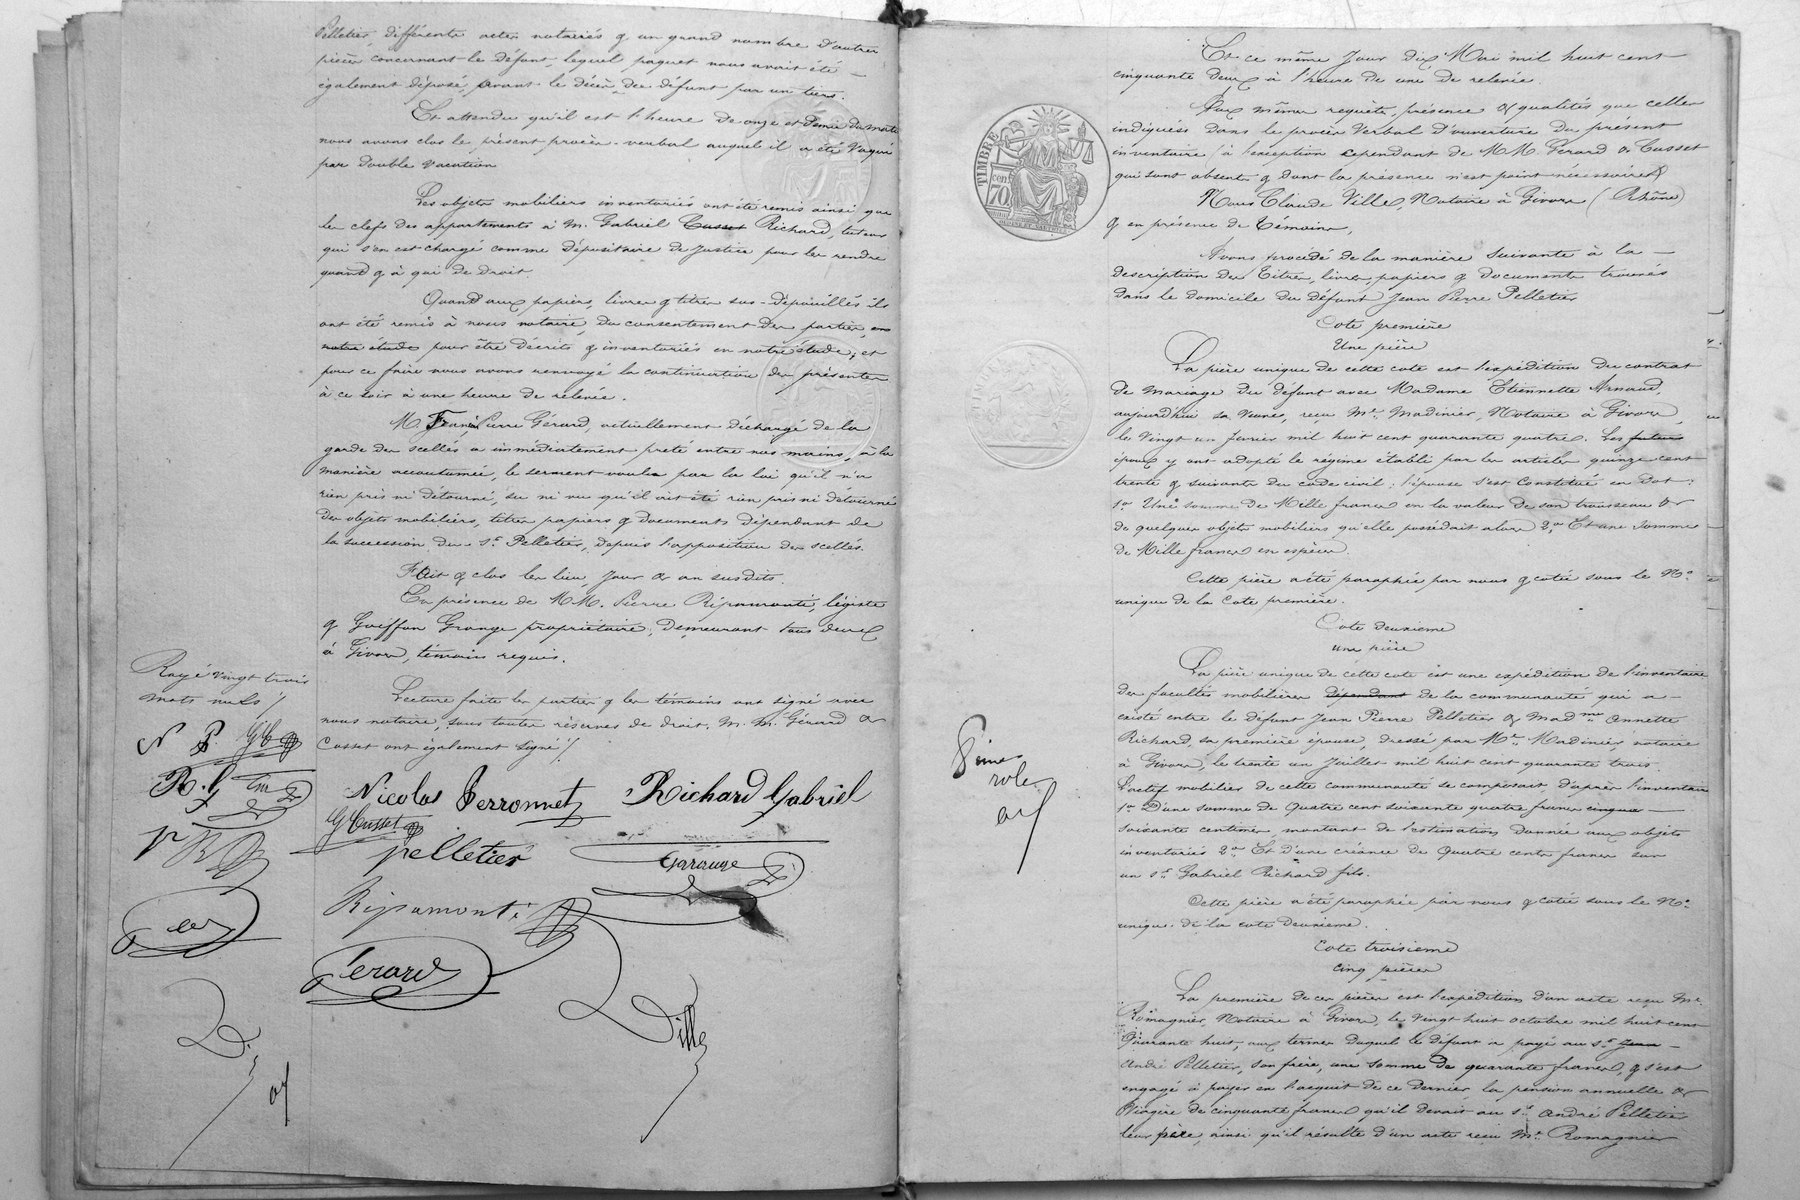 Pelletier, différents actes notariés & un grand nombre d'autres
pièces concernant le défunt, lequel paquet nous avait été
également déposé, avant le décès du défunt par un tiers.
Et attendu qu'il est l'heure de onze et demie du matin
nous avons clos le présent procès-verbal auquel il a été vaqué
par double vacation
Les objets mobiliers inventoriés ont été remis ainsi que
les clefs des appartements à M. Gabriel Cusset Richard, tuteur
qui s'en est chargé comme dépositaire de Justice pour les rendre
quand & à qui de droit.
Quand aux papiers, livres & titres sus-dépouillés ils
ont été remis à nous notaire, du consentement des parties, en
notre étude pour être décrits & inventoriés en notre étude; et
pour ce faire nous avons renvoyé la continuation des présentes
à ce soir à une heure de relevée.
M. Pierre Gérard, actuellement déchargé de la
garde des scellés a immédiatement prêté entre nos mains, à la
manière accoutumée, le serment voulu par la loi qu'il n'a
rien pris ni détourné, su ni vu qu'il ait été rien pris ni détourné
des objets mobiliers, titres papiers & documents dépendant de
la succession du Sr. Pelletier, depuis l'apposition des scellés.
Fait & clos les lieu, jour & an susdits.
En présence de MM. Pierre Ripamonti, légiste
& Goiffon Grange propriétaire, demeurant tous deux
à Givors, témoins requis.
Lecture faite les parties & les témoins ont signé avec
nous notaire, sous toutes réserves de droit. M. M. Gérard &
Cusset ont également signé /.
Rayé vingt trois
mots nuls /
N P. GC
R. G
P R
Nicolas Perronnet Richard Gabriel
G Cusset
pelletier
Garange
Ripamonti
Gerard
Ville
Et ce même jour dix Mai mil huit cent
cinquante deux à l'heure de une de relevée.
Aux mêmes requête, présence & qualités que celles
indiquées dans le procès verbal d'ouverture du présent
inventaire (à l'exception cependant de MM. Gerard & Cusset
qui sont absents & dont la présence n'est point nécessaire)
Nous Claude Ville, Notaire à Givors (Rhône)
& en présence de témoins,
Avons procédé de la manière suivante à la
description des titres, livres, papiers & documents trouvés
dans le domicile du défunt Jean Pierre Pelletier
TIMBRE
70 cent
Cote première
Une pièce
La pièce unique de cette cote est l'expédition du contrat
de mariage du défunt avec Madame Etiennette Arnaud,
aujourd'hui sa veuve, reçu Me. Madinier, Notaire à Givors,
le vingt un février mil huit cent quarante quatre. Les futurs
époux y ont adopté le régime établi par les articles quinze cent
trente & suivants du code civil: l'épouse s'est constitué en dot:
1° Une somme de Mille francs en la valeur de son trousseau &
de quelques objets mobiliers qu'elle possédait alors 2° Et une somme
de Mille francs en espèces.
Cette pièce a été paraphée par nous & cotée sous le No.
unique de la Cote première.
Cote deuxieme
une pièce
La pièce unique de cette cote est une expédition de l'inventaire
des facultés mobilières dépendant de la communauté qui a
existé entre le défunt Jean Pierre Pelletier & Madme Annette
Richard, sa première épouse, dressé par Me. Madinier, notaire
à Givors, le trente un Juillet mil huit cent quarante trois.
L'actif mobilier de cette communauté se composait d'après l'inventaire
1° D'une somme de Quatre cent soixante quatre francs cinqua
soixante centimes, montant de l'estimation donnée aux objets
inventoriés 2° Et d'une créance de Quatre cents francs sur
un Sr. Gabriel Richard fils.
Cette pièce a été paraphée par nous & cotée sous le No.
unique de la cote deuxieme.
role
Cote troisieme
Cinq pièces
La première de ces pièces est l'expédition d'un acte reçu Me.
Romagnier, Notaire à Givors, le vingt huit octobre mil huit cent
quarante huit, aux termes duquel le défunt a payé au Sr. Jean
André Pelletier, son frère, une somme de quarante francs, & s'est
engagé à payer en l'acquit de ce dernier la pension annuelle &
viagère de cinquante francs qu'il devait au Sr. André Pelletier
leur père, ainsi qu'il résulte d'un acte reçu Me. Romagnier